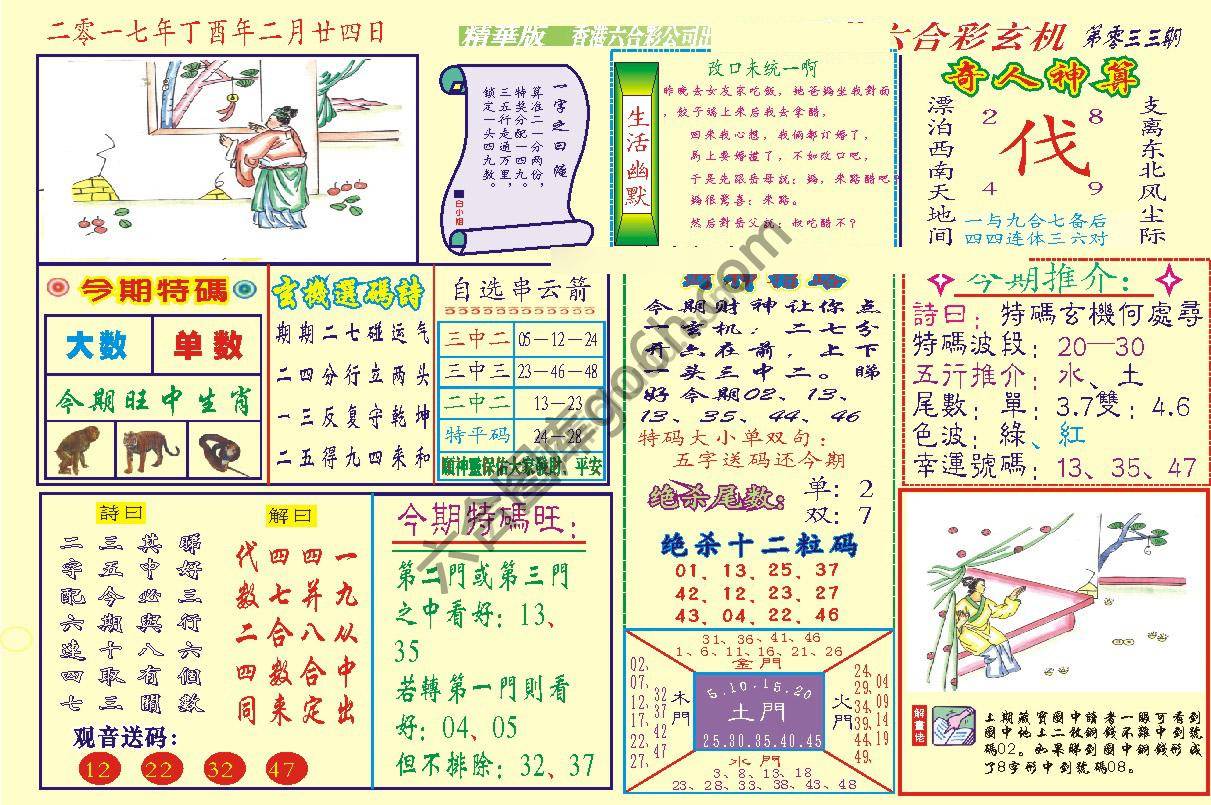 二零一七年丁酉年二月廿四日
精華版 香港六合彩公司出
六合彩玄机 第零三三期
一字之曰 隨
算准二一分两份，
特奖分配一四九，
三五行走通万里，
锁定一头四九数。
白小姐
生活幽默
改口未统一啊
昨晚去女友家吃飯，她爸媽坐我對面
，餃子端上來后我去拿醋，
回来我心想，我俩都订婚了，
馬上要婚禮了，不如改口吧，
于是先跟岳母説：媽，来點醋吧
媽很驚喜：来點。
然后對岳父説：叔吃醋不？
奇人神算
漂泊西南天地间
2 8
伐
4 9
支离东北风尘际
一与九合七备后
四四连体三六对
今期特碼
大数 单数
今期旺中生肖
玄機選碼詩
期期二七碰运气
二四分行立两头
一三反复守乾坤
二五得九四来和
自选串云箭
三中二 05—12—24
三中三 23—46—48
二中二 13—23
特平码 24—28
願神靈保佑大家發財、平安
今期财神让你点
一玄机，二七分
开六在前，上下
一头三中二。睇
好今期02、13、
13、35、44、46
特码大小单双句：
五字送码还今期
绝杀尾数：
单：2
双：7
绝杀十二粒码
01、13、25、37
42、12、23、27
43、04、22、46
今期推介：
詩曰：特碼玄機何處尋
特碼波段：20—30
五行推介：水、土
尾數：單：3.7雙：4.6
色波：綠、紅
幸運號碼：13、35、47
詩曰
二字配六連四七
三五今期十取三
其中必與八有關
睇好三行六個數
解曰
代数二四同
四七合数来
四并八合定
一九从中出
观音送码：
12 22 32 47
今期特碼旺：
第二門或第三門
之中看好：13、
35
若轉第一門則看
好：04、05
但不排除：32、37
31、36、41、46
1、6、11、16、21、26
金門
02、07、12、17、22、27、
32、37、42、47、
木門
5.10.15.20
土門
25.30.35.40.45
火門
24、29、34、39、44、49、
04、09、14、19
水門
3、8、13、18
23、28、33、38、43、48
解畫佬
上期藏寶圖中讀者一眼可看到
圖中地上二枚銅錢不難中到號
碼02。如果睇到圖中銅錢形成
了8字形中到號碼08。
六合图库go6h.com